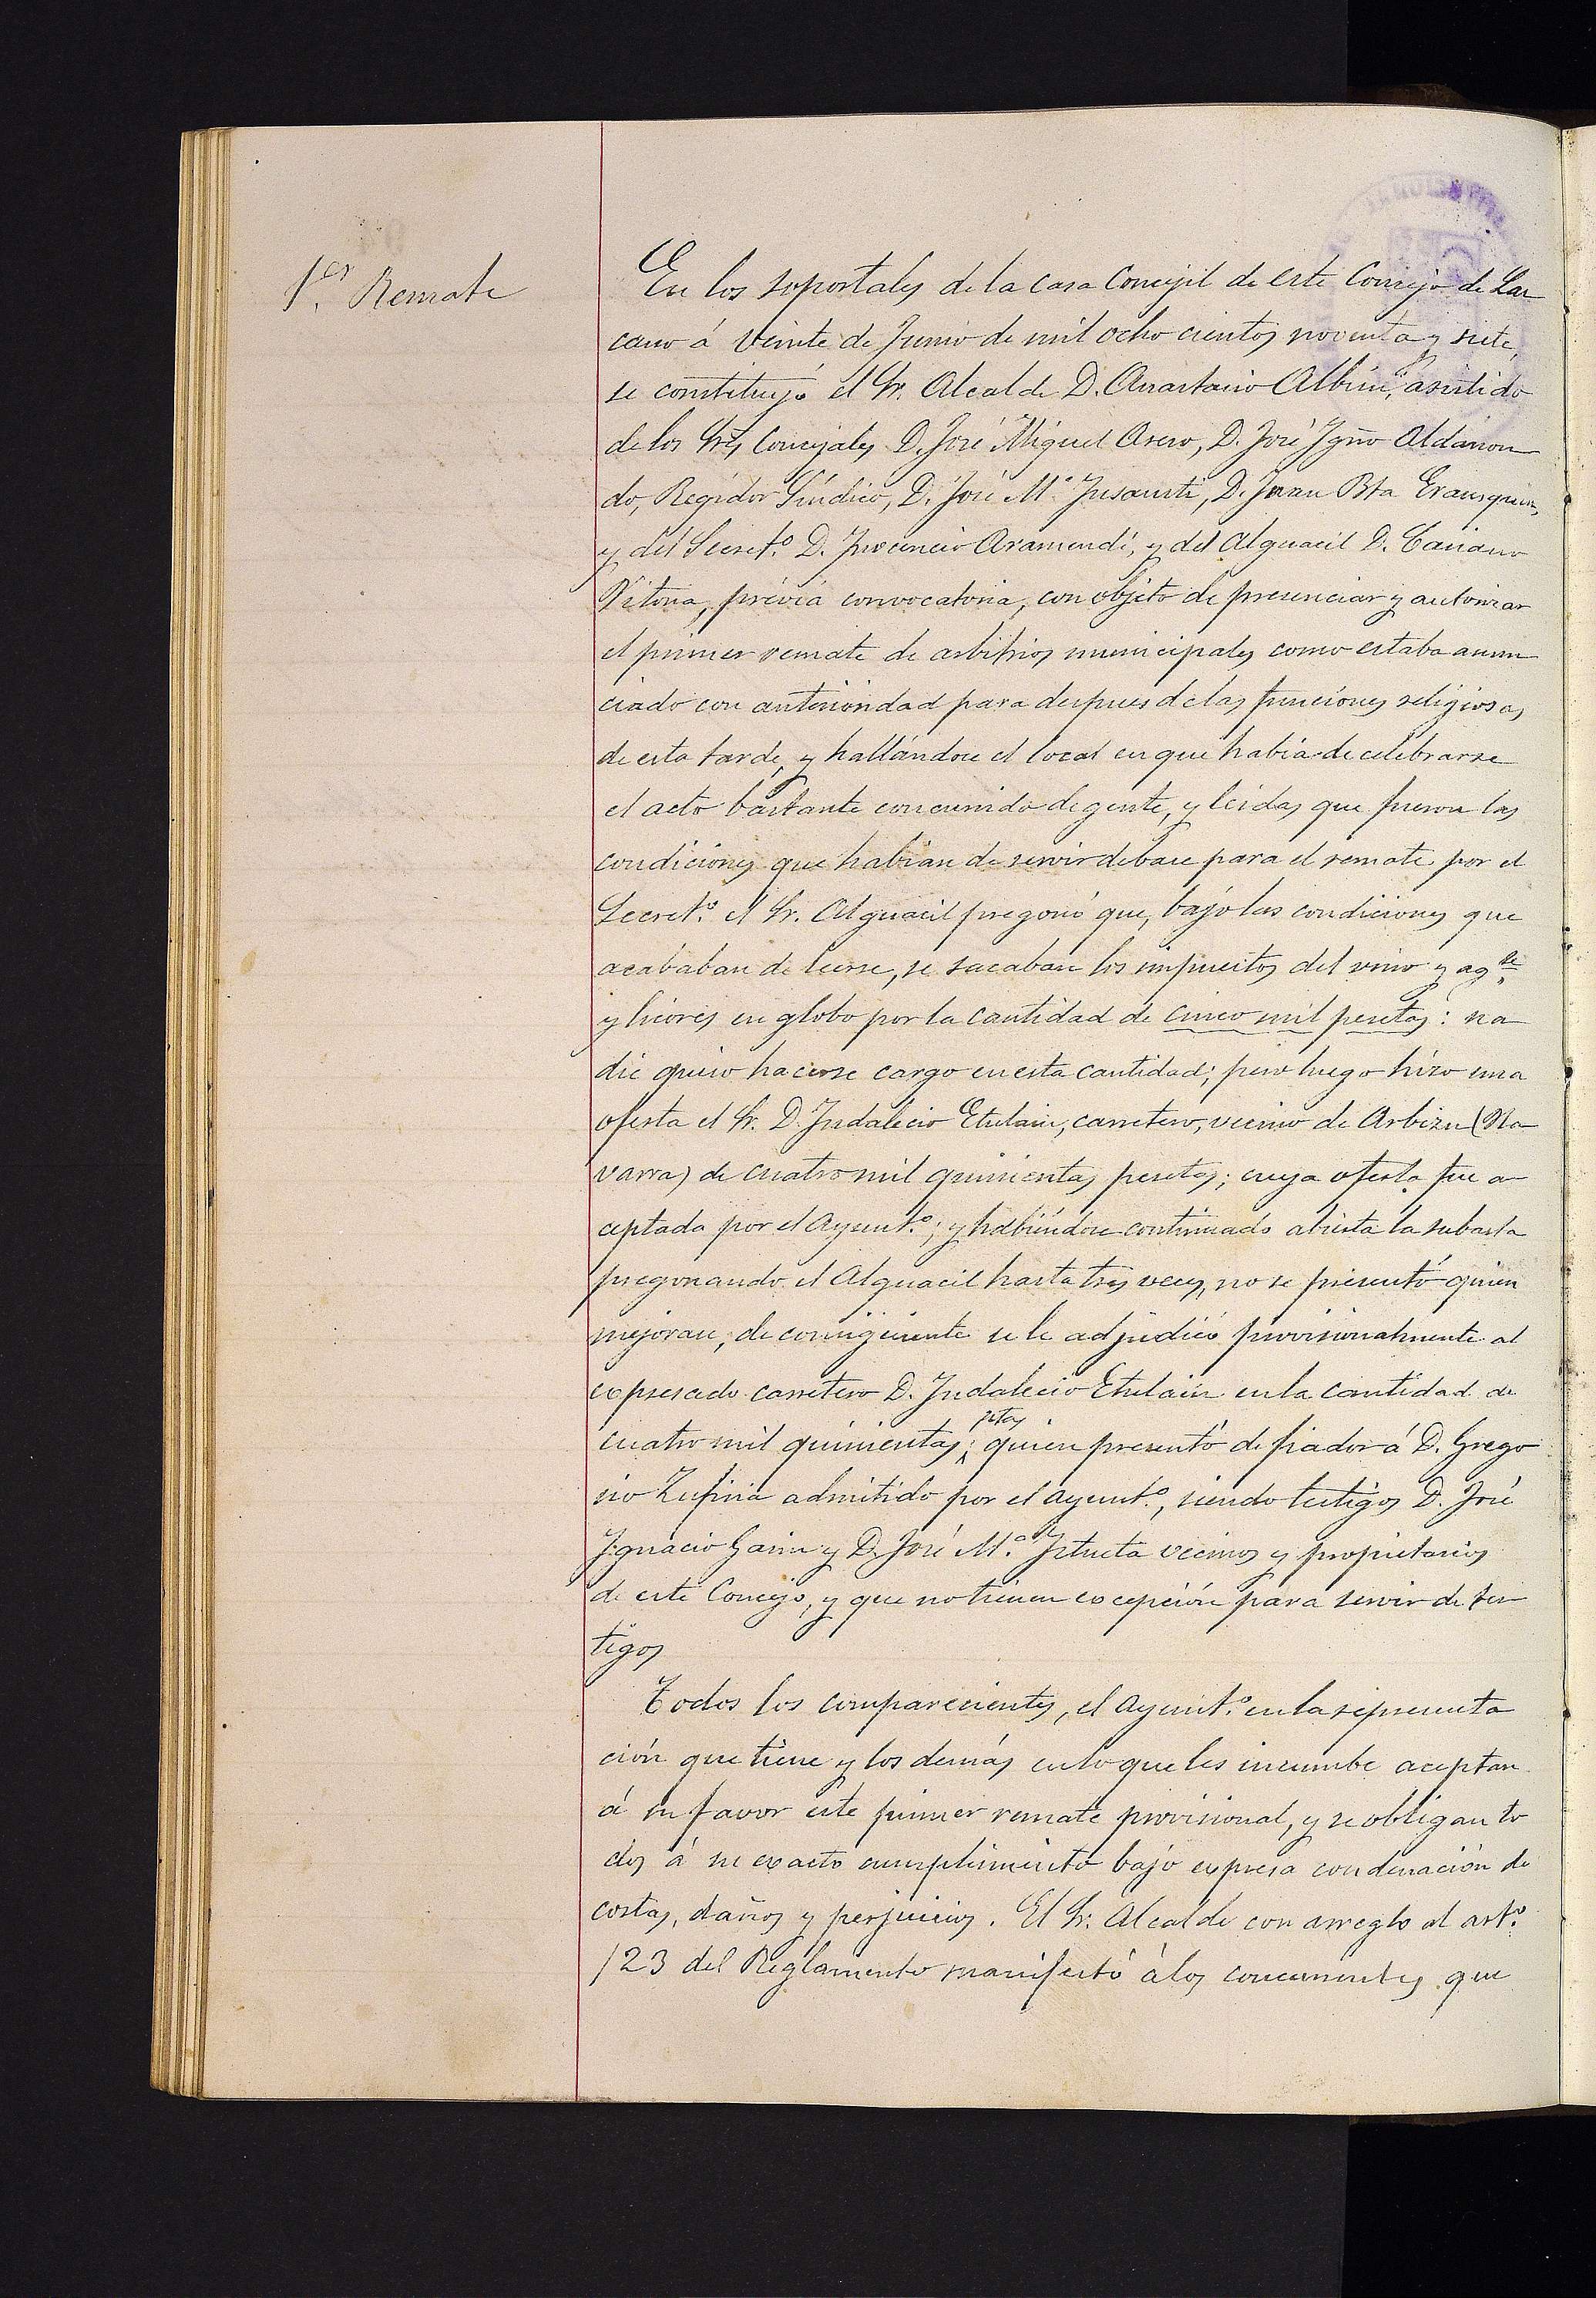 1.er Remate
En los soportales de la casa Concejil de este Concejo de Laz
cano á veinte de Junio de mil ocho cientos noventa y siete,
se constituyó el Sr. Alcalde D. Anastasio Albisu, asistido
de los Sres Concejales D. José Miguel Asero, D. José Ygno Aldanon
do, Regidor Síndico, D. José M.ª Jusausti, D. Juan Bta Erausquin,
y del Secret.º D. Inocencio Aramendi, y del Alguacil D. Casiano
Vitoria, prévia convocatoria, con objeto de presenciar y autorizar
el primer remate de arbitrios municipales como estaba anun
ciado con anterioridad para despues de las funciones religiosas
de esta tarde, y hallándose el local en que habia de celebrarse
el acto bastante concurrido de gente, y leidas que fueron las
condiciones que habian de servir de base para el remate por el
Secret.º el Sr. Alguacil pregonó que, bajo las condiciones que
acababan de leerse, se sacaban los impuestos del vino y ag.te
y licores en globo por la cantidad de cinco mil pesetas: na
die quiso hacerse cargo en esta cantidad; pero luego hizo una
oferta el Sr. D. Indalecio Etulain, carretero, vecino de Arbizu (Na
varra) de cuatro mil quinientas pesetas; cuya oferta fue a
ceptada por el Ayunt.º; y habiéndose continuado abierta la subasta
pregonando el Alguacil hasta tres veces, no se presentó quien
mejorase, de consiguiente se le adjudicó provisionalmente al
expresado carretero D. Indalecio Etulain en la cantidad de
cuatro mil quinientas ptas; quien presentó de fiador á D. Grego
rio Zufiria admitido por el ayunt.º, siendo testigos D. José
Ygnacio Garin y D. José M.ª Iztueta vecinos y propietarios
de este Concejo, y que no tienen excepción para servir de tes
tigos
Todos los comparecientes, el Ayunt.º en la representa
ción que tiene y los demás en lo que les incumbe aceptan
á su favor este primer remate provisional, y se obligan to
dos á su exacto cumplimiento bajo expresa condenación de
costas, daños y perjuicios. El Sr. Alcalde con arreglo al art.º
123 del Reglamento manifestó á los concurrentes que